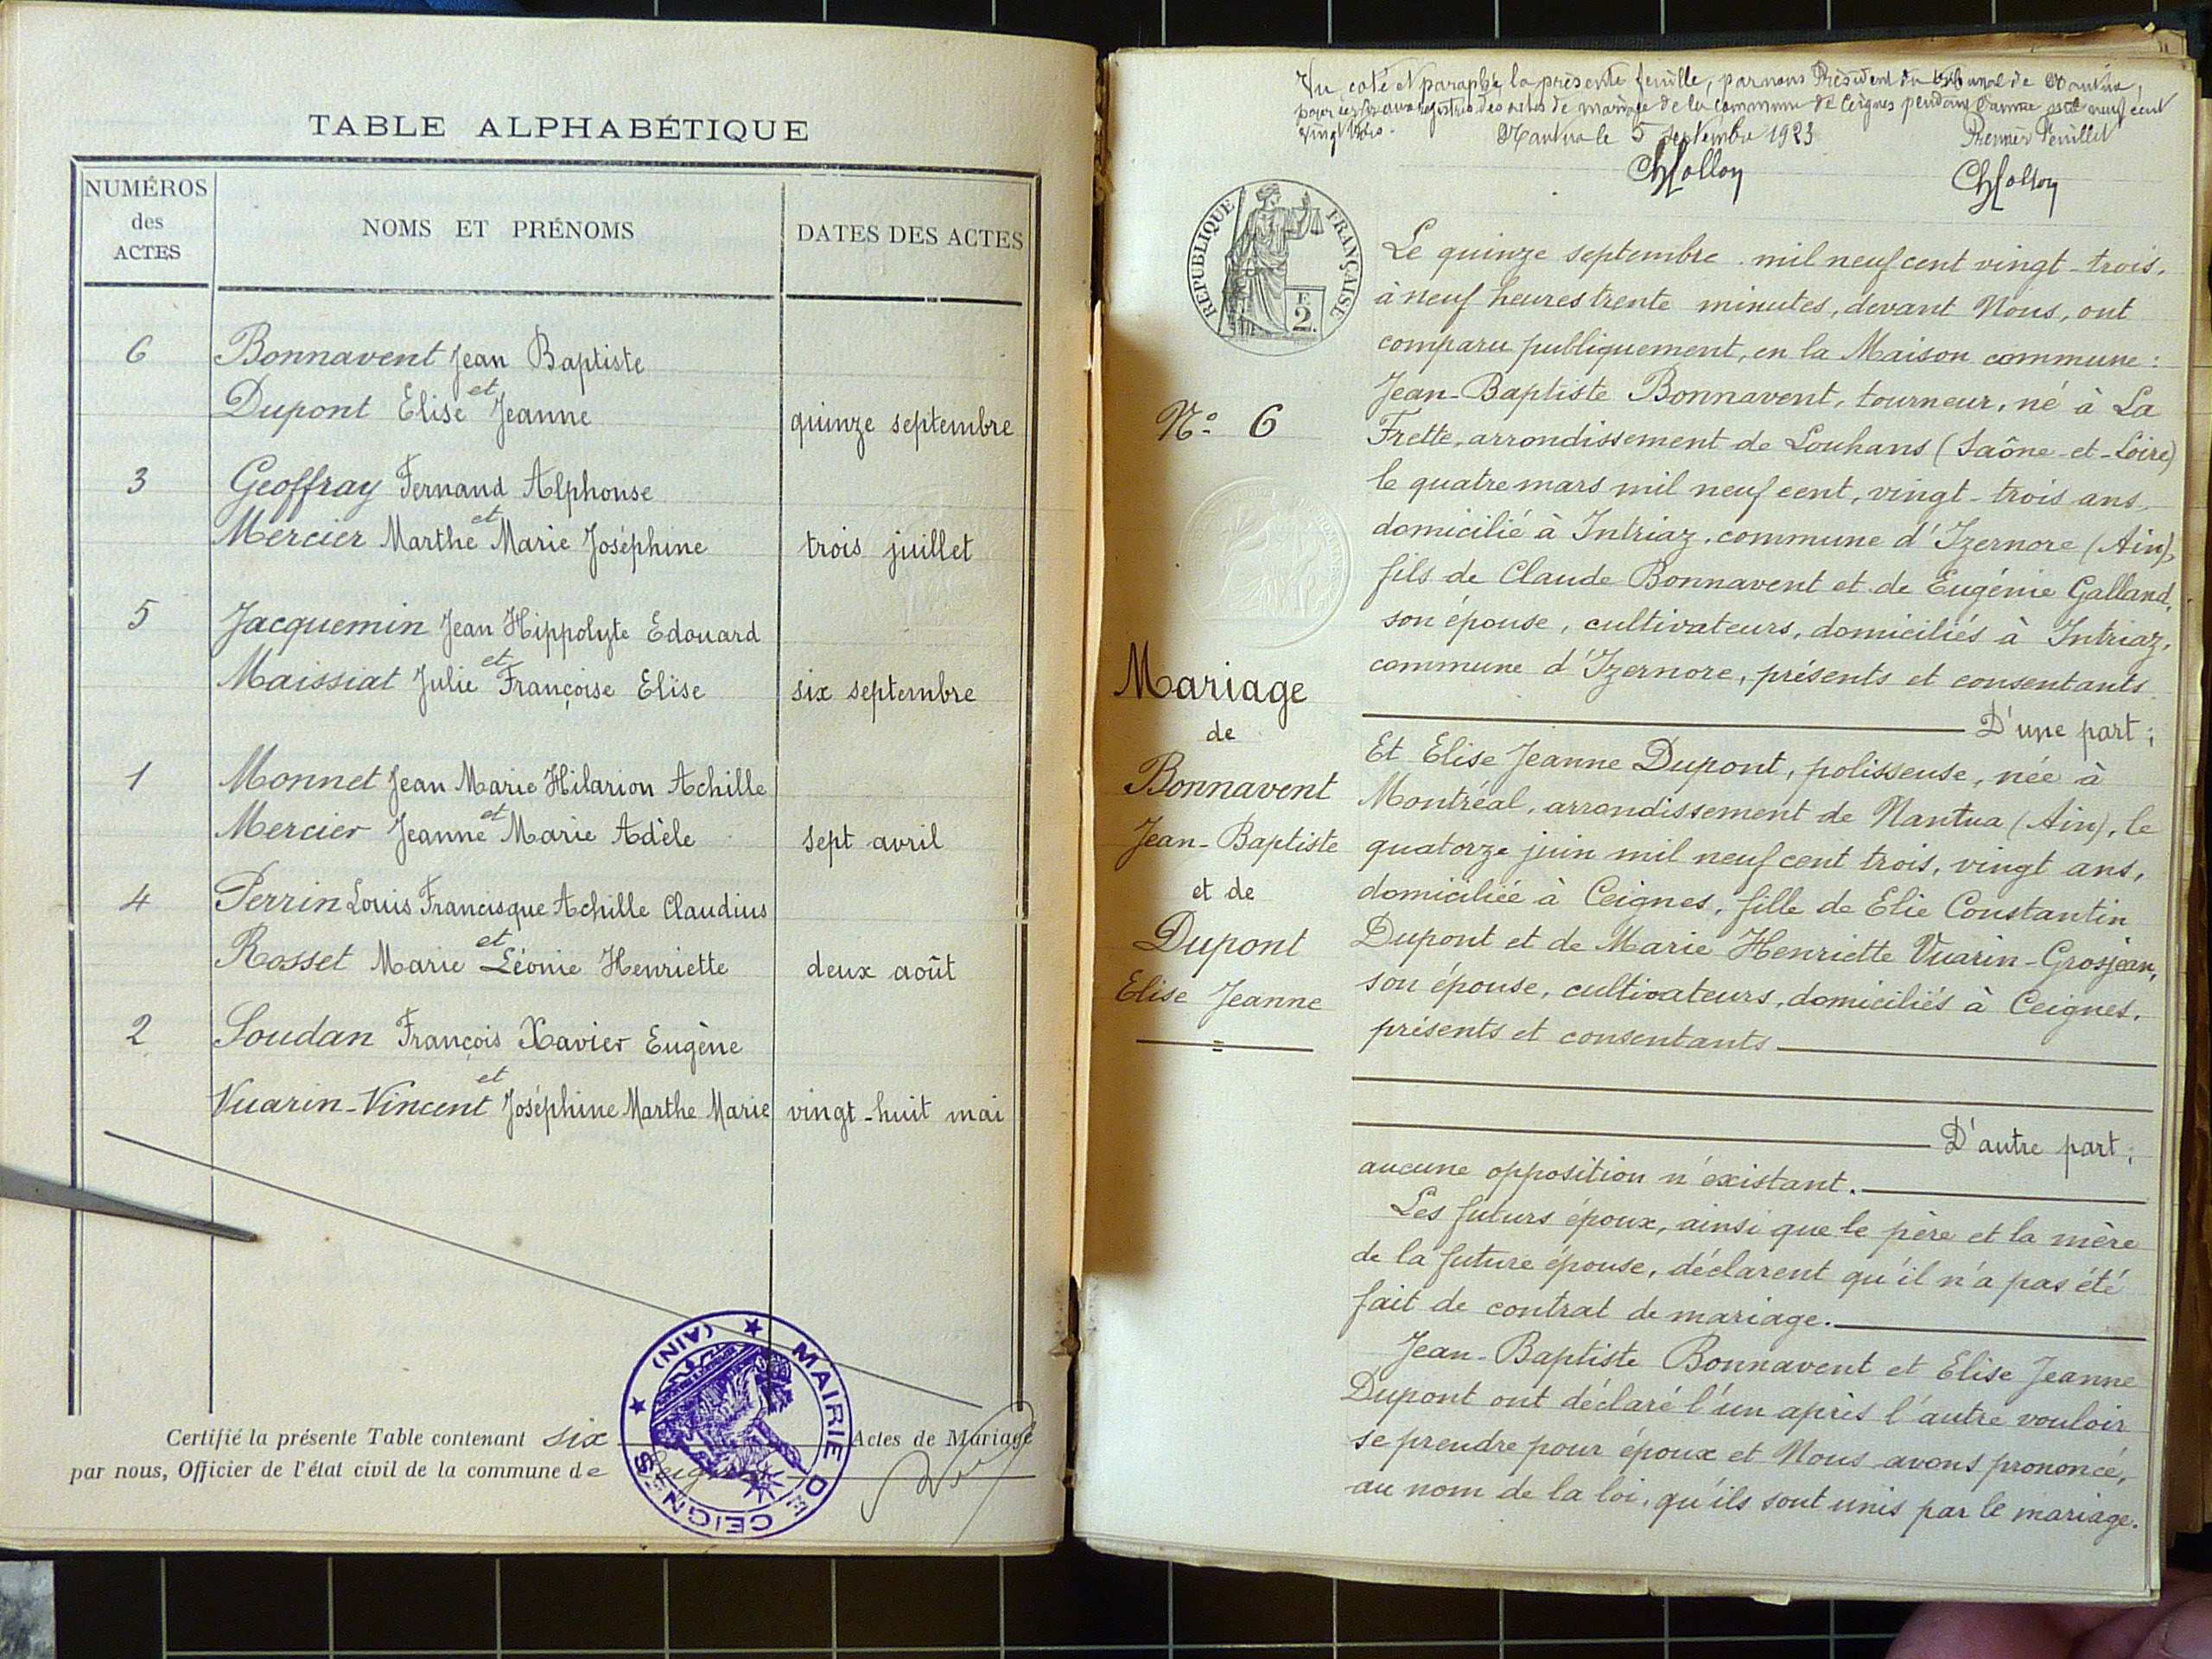 TABLE ALPHABÉTIQUE
NUMÉROS
des
ACTES
NOMS ET PRÉNOMS
DATES DES ACTES
6 Bonnavent Jean Baptiste
et
Dupont Elise Jeanne quinze septembre
3 Geoffray Fernand Alphonse
et
Mercier Marthe Marie Joséphine trois juillet
5 Jacquemin Jean Hippolyte Edouard
et
Maissiat Julie Françoise Elise six septembre
1 Monnet Jean Marie Hilarion Achille
et
Mercier Jeanne Marie Adèle sept avril
4 Perrin Louis Francisque Achille Claudius
et
Rosset Marie Léonie Henriette deux août
2 Soudan François Xavier Eugène
et
Vuarin-Vincent Joséphine Marthe Marie vingt-huit mai
Certifié la présente Table contenant six Actes de Mariage
par nous, Officier de l'état civil de la commune de Ceignes
MAIRIE DE CEIGNES (AIN)
Vu coté et paraphé la présente feuille, par nous Président du tribunal de Nantua,
pour servir aux registres des actes de mariage de la commune de Ceignes pendant l'année mil neuf cent
vingt trois. Nantua le 5 septembre 1923 Premier feuillet
RÉPUBLIQUE FRANÇAISE
2
Nº 6
Mariage
de
Bonnavent
Jean-Baptiste
et de
Dupont
Elise Jeanne
Le quinze septembre mil neuf cent vingt-trois,
à neuf heures trente minutes, devant Nous, ont
comparu publiquement, en la Maison commune :
Jean-Baptiste Bonnavent, tourneur, né à La
Frette, arrondissement de Louhans (Saône-et-Loire)
le quatre mars mil neuf cent, vingt-trois ans,
domicilié à Intriaz, commune d'Izernore (Ain),
fils de Claude Bonnavent et de Eugénie Galland,
son épouse, cultivateurs, domiciliés à Intriaz,
commune d'Izernore, présents et consentants
D'une part ;
Et Elise Jeanne Dupont, polisseuse, née à
Montréal, arrondissement de Nantua (Ain), le
quatorze juin mil neuf cent trois, vingt ans,
domiciliée à Ceignes, fille de Elie Constantin
Dupont et de Marie Henriette Vuarin-Grosjean,
son épouse, cultivateurs, domiciliés à Ceignes,
présents et consentants
D'autre part ;
aucune opposition n'existant.
Les futurs époux, ainsi que le père et la mère
de la future épouse, déclarent qu'il n'a pas été
fait de contrat de mariage.
Jean-Baptiste Bonnavent et Elise Jeanne
Dupont ont déclaré l'un après l'autre vouloir
se prendre pour époux et Nous avons prononcé,
au nom de la loi, qu'ils sont unis par le mariage.